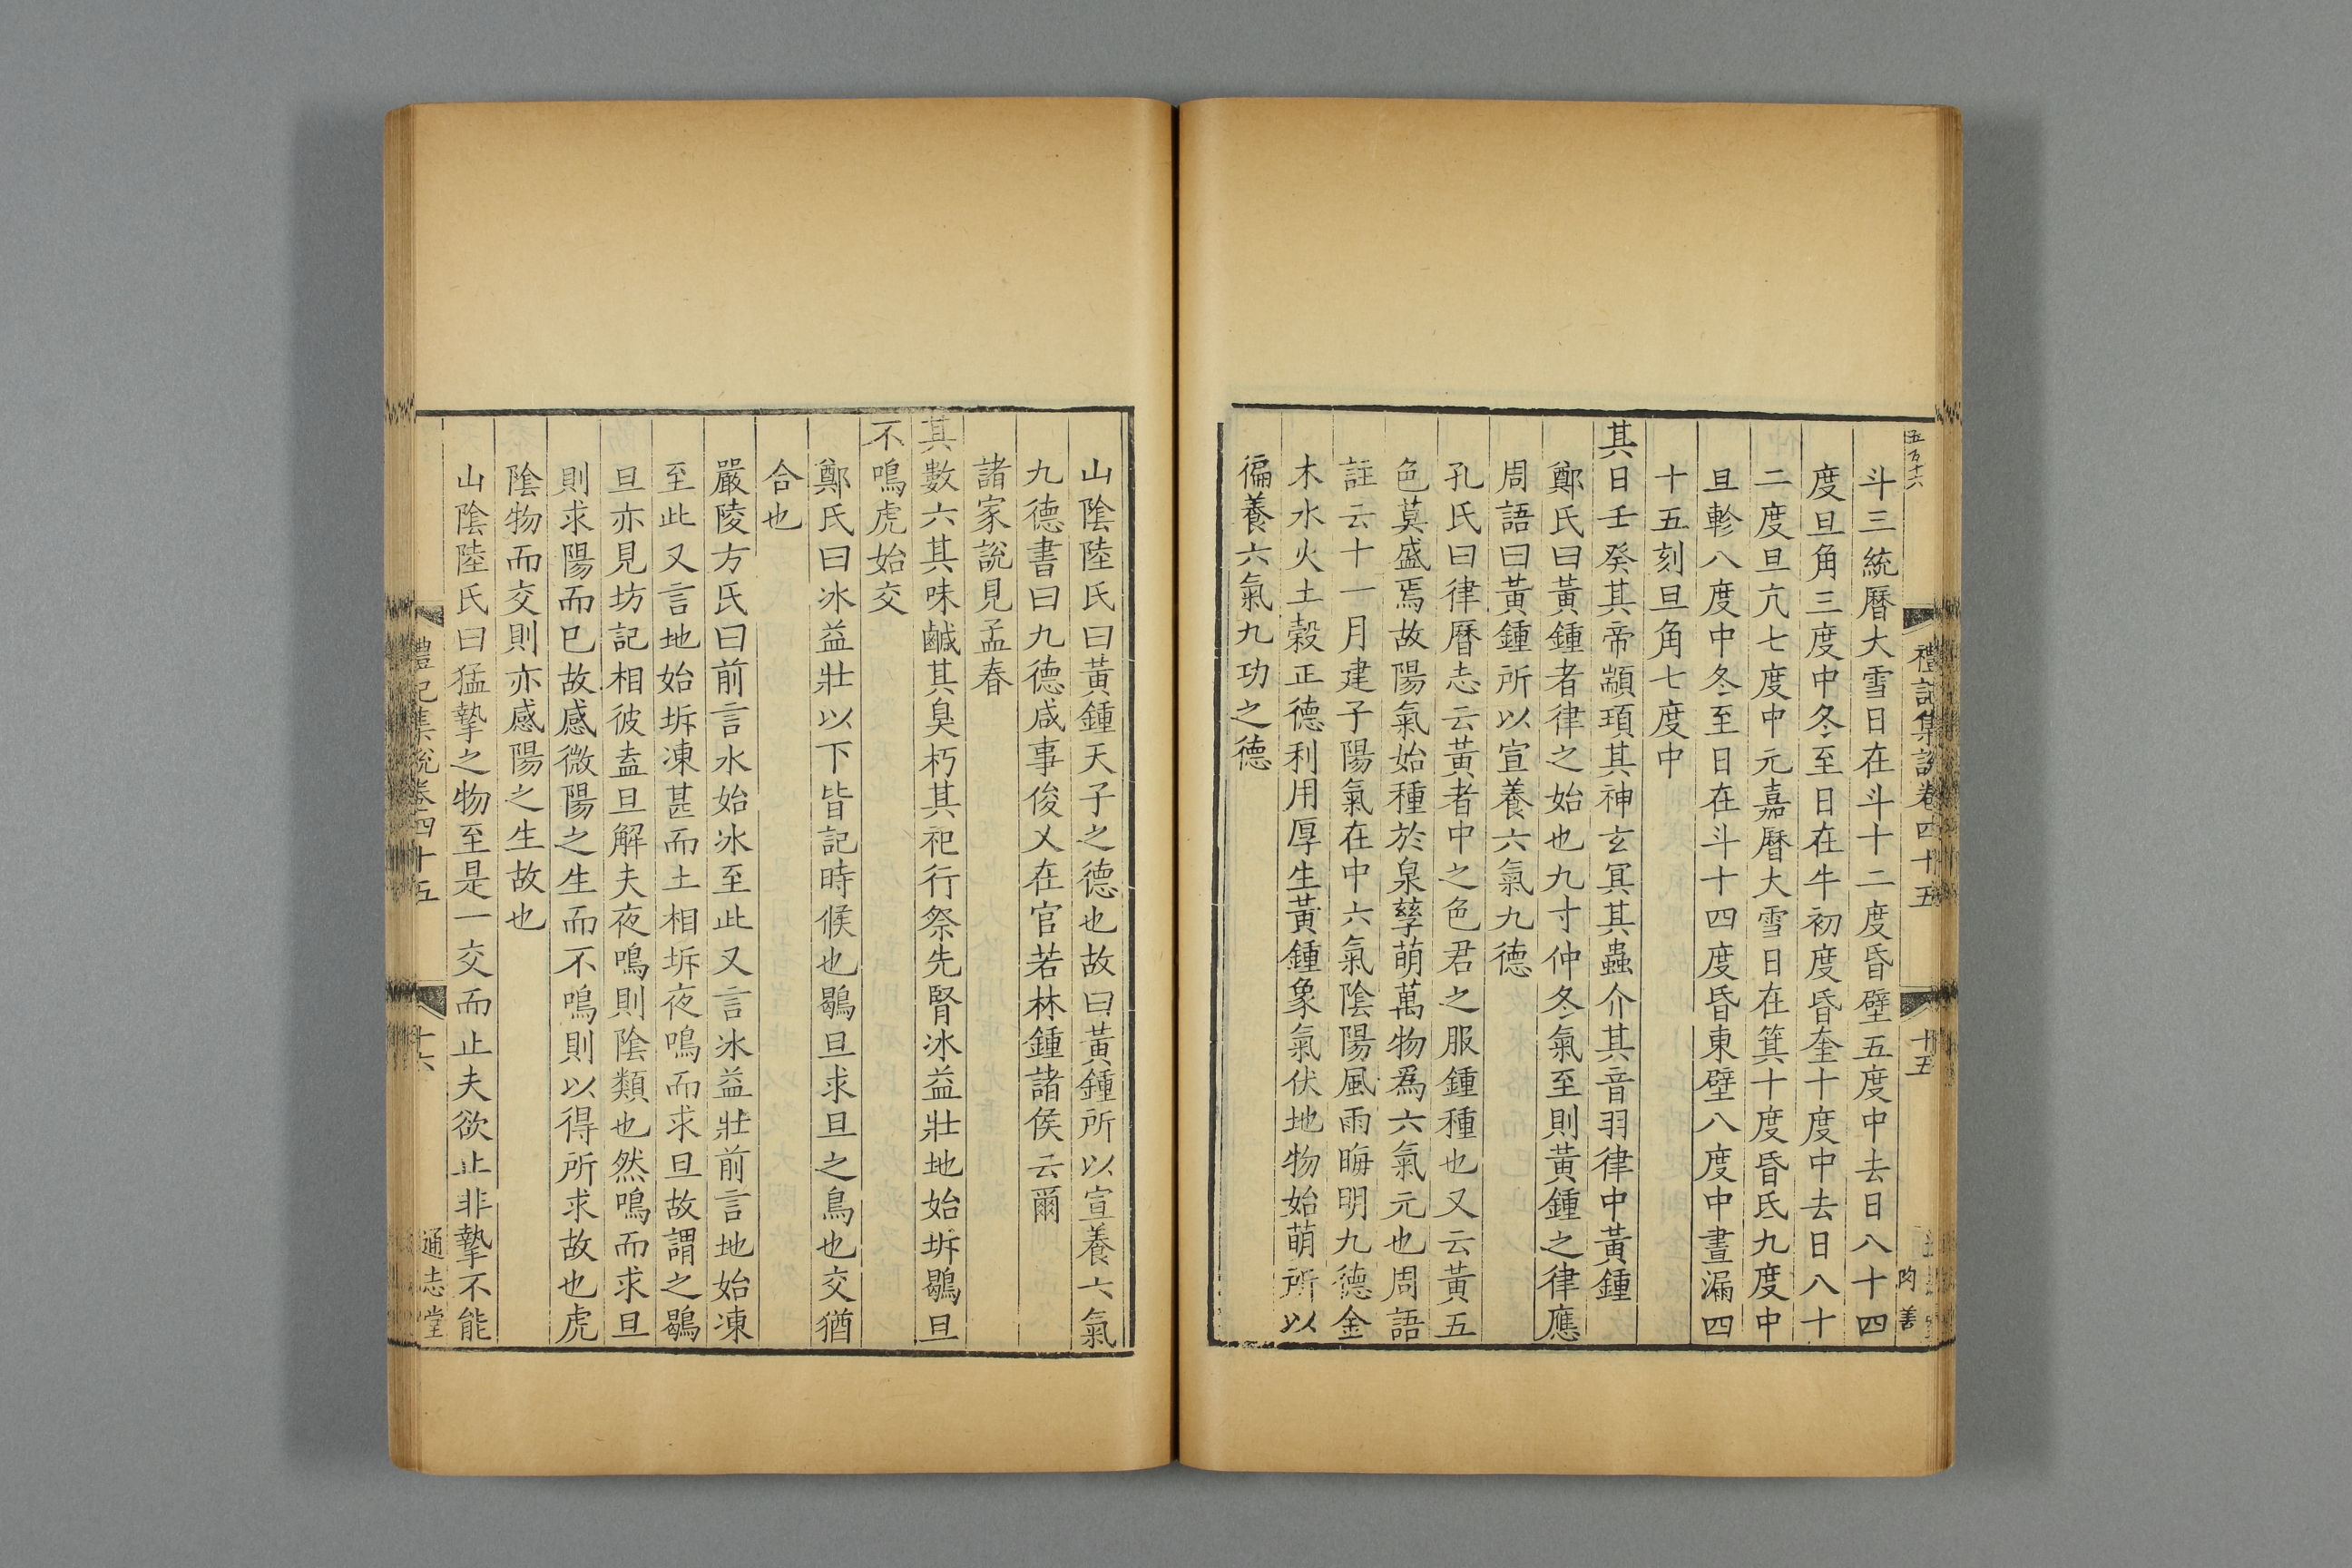 五百十六
禮記集說卷四十五
十五
斗三統曆大雪日在斗十二度昏壁五度中去日八十四
度旦角三度中冬至日在牛初度昏奎十度中去日八十
二度旦亢七度中元嘉曆大雪日在箕十度昏氐九度中
旦軫八度中冬至日在斗十四度昏東壁八度中晝漏四
十五刻旦角七度中
其日壬癸其帝顓頊其神玄冥其蟲介其音羽律中黃鍾
鄭氏曰黃鍾者律之始也九寸仲冬氣至則黃鍾之律應
周語曰黃鍾所以宣養六氣九德
孔氏曰律曆志云黃者中之色君之服鍾種也又云黃五
色莫盛焉故陽氣始種於泉孳萌萬物爲六氣元也周語
註云十一月建子陽氣在中六氣陰陽風雨晦明九德金
木水火土穀正德利用厚生黃鍾象氣伏地物始萌所以
徧養六氣九功之德
山陰陸氏曰黃鍾天子之德也故曰黃鍾所以宣養六氣
九德書曰九德咸事俊乂在官若林鍾諸侯云爾
諸家說見孟春
其數六其味鹹其臭朽其祀行祭先腎冰益壯地始坼鶡旦
不鳴虎始交
鄭氏曰冰益壯以下皆記時候也鶡旦求旦之鳥也交猶
合也
嚴陵方氏曰前言水始冰至此又言冰益壯前言地始凍
至此又言地始坼凍甚而土相坼夜鳴而求旦故謂之鶡
旦亦見坊記相彼盍旦解夫夜鳴則陰類也然鳴而求旦
則求陽而已故感微陽之生而不鳴則以得所求故也虎
陰物而交則亦感陽之生故也
山陰陸氏曰猛摯之物至是一交而止夫欲止非摯不能
禮記集說卷四十五
十六
通志堂